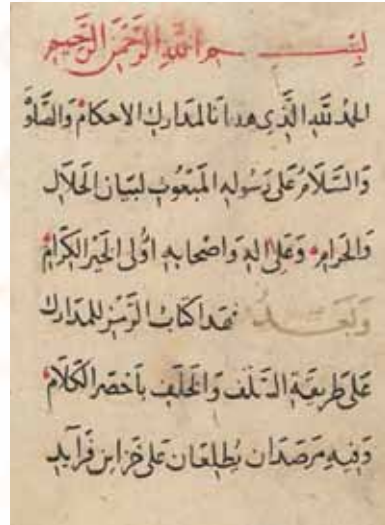 بسم الله الرحمن الرحيم
الحمد لله الذي هدانا لمدارك الاحكام والصلوة
والسلام على رسوله المبعوث لبيان الحلال
والحرام وعلى اله واصحابه اولى الخير الكرام
وبعد فهذا كتاب الرمز للمدارك
على طريقة السلف والخلف باخصر الكلام
وفيه مرصدان يطلعان على خزاين فرايد